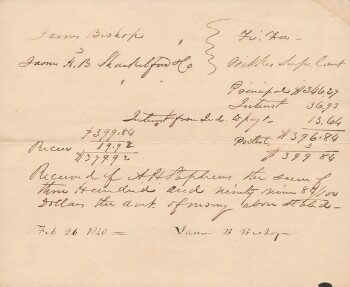 James Bishop Fi. Fa
vs
James H. B. Shackelford & Co Superior Court
Principal $346.27
Interest 36.93
Interest from Jud. to pay 13.64
$399.84 $396.84
19.92 Protest 3
$379.92 $399 84
Received of A H Stephens the sum of
three Hundred and ninety nine 84/100
Dollars the amt of money above stated-
Feb 26 James B Bishop